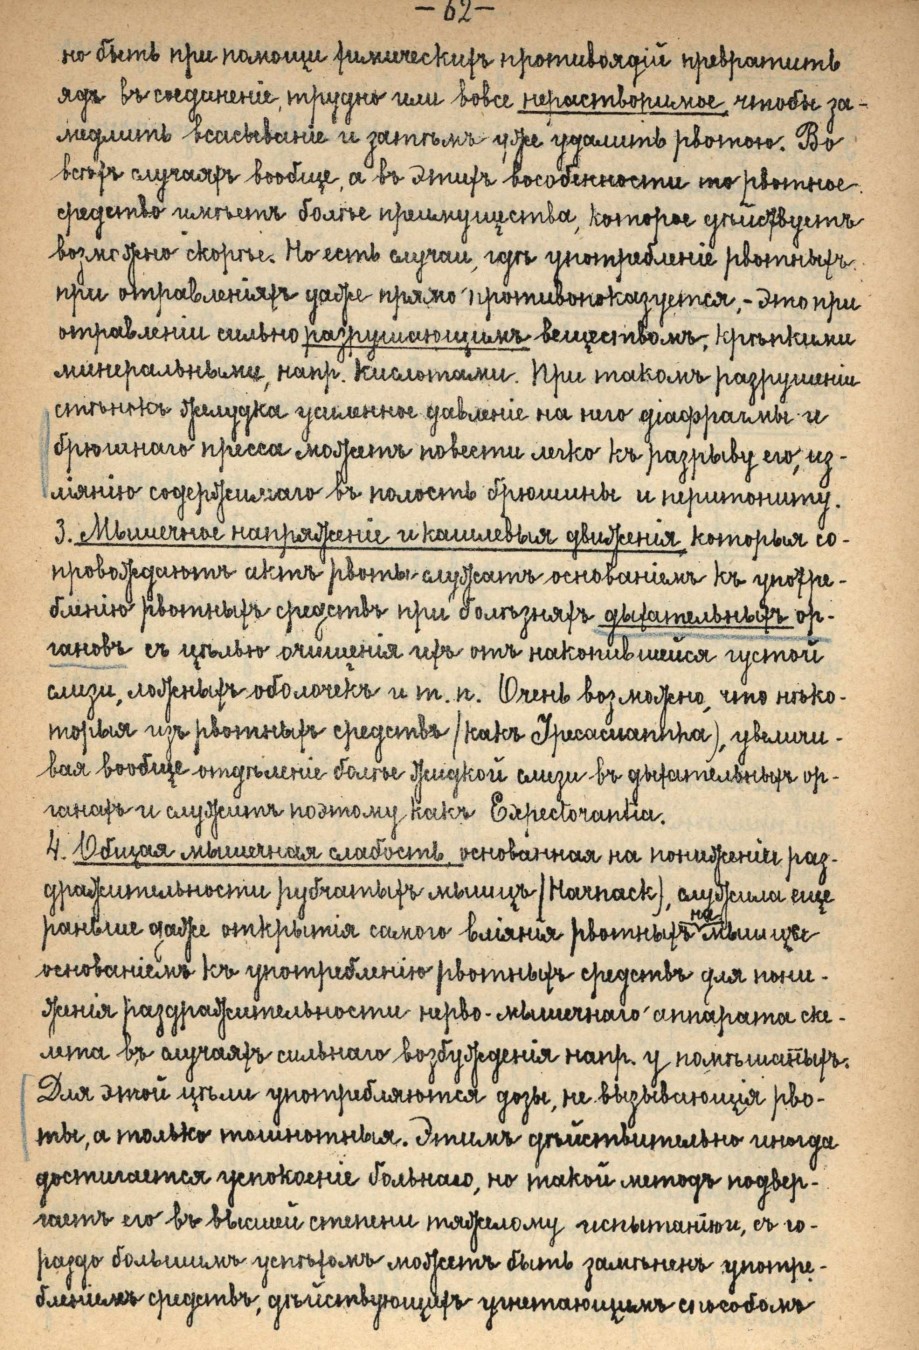 — 62 —
но быть при помощи химическихъ противоядій превратить
ядъ въ соединеніе, трудно или вовсе нерастворимое, чтобы за-
медлить всасываніе и затѣмъ уже удалить рвотою. Во
всѣхъ случаяхъ вообще, а въ этихъ вособенности то рвотное
средство имѣетъ болѣе преимущества, которое дѣйствуетъ
возможно скорѣе. Но есть случаи, гдѣ употребленіе рвотныхъ
при отравленіяхъ даже прямо противопоказуется, - это при
отравленіи сильно разрушающимъ веществомъ, крѣпкими
минеральными, напр. кислотами. При такомъ разрушеніи
стѣнокъ желудка усиленное давленіе на него діафрагмы и
брюшнаго пресса можетъ повести легко къ разрыву его, из-
ліянію содержимаго въ полость брюшины и перитониту.
3. Мышечное напряженіе и кашлевыя движенія, которыя со-
провождаютъ актъ рвоты служатъ основаніемъ къ употре-
бленію рвотныхъ средствъ при болѣзняхъ дыхательныхъ ор-
гановъ съ цѣлью очищенія ихъ отъ накопившейся густой
слизи, ложныхъ оболочекъ и т. п. Очень возможно, что нѣко-
торыя изъ рвотныхъ средствъ (какъ Ipecacuanha), увеличи-
вая вообще отдѣленіе болѣе жидкой слизи въ дыхательныхъ ор-
ганахъ и служитъ поэтому какъ Expectorantia.
4. Общая мышечная слабость, основанная на пониженіи раз-
дражительности рубчатыхъ мышцъ (Harnack), служила еще
раньше даже открытія самого вліянія рвотныхъ на мышцы
основаніемъ къ употребленію рвотныхъ средствъ для пони-
женія раздражительности нерво-мышечнаго аппарата ске-
лета въ случаяхъ сильнаго возбужденія напр. у помѣшаныхъ.
Для этой цѣли употребляются дозы, не вызывающія рво-
ты, а только тошнотныя. Этимъ дѣйствительно иногда
достигается успокоеніе больнаго, но такой методъ подвер-
гаетъ его въ высшей степени тяжелому испытанію и, съ го-
раздо большимъ успѣхомъ можетъ быть замѣненъ употре-
бленіемъ средствъ, дѣйствующихъ угнетающимъ способомъ